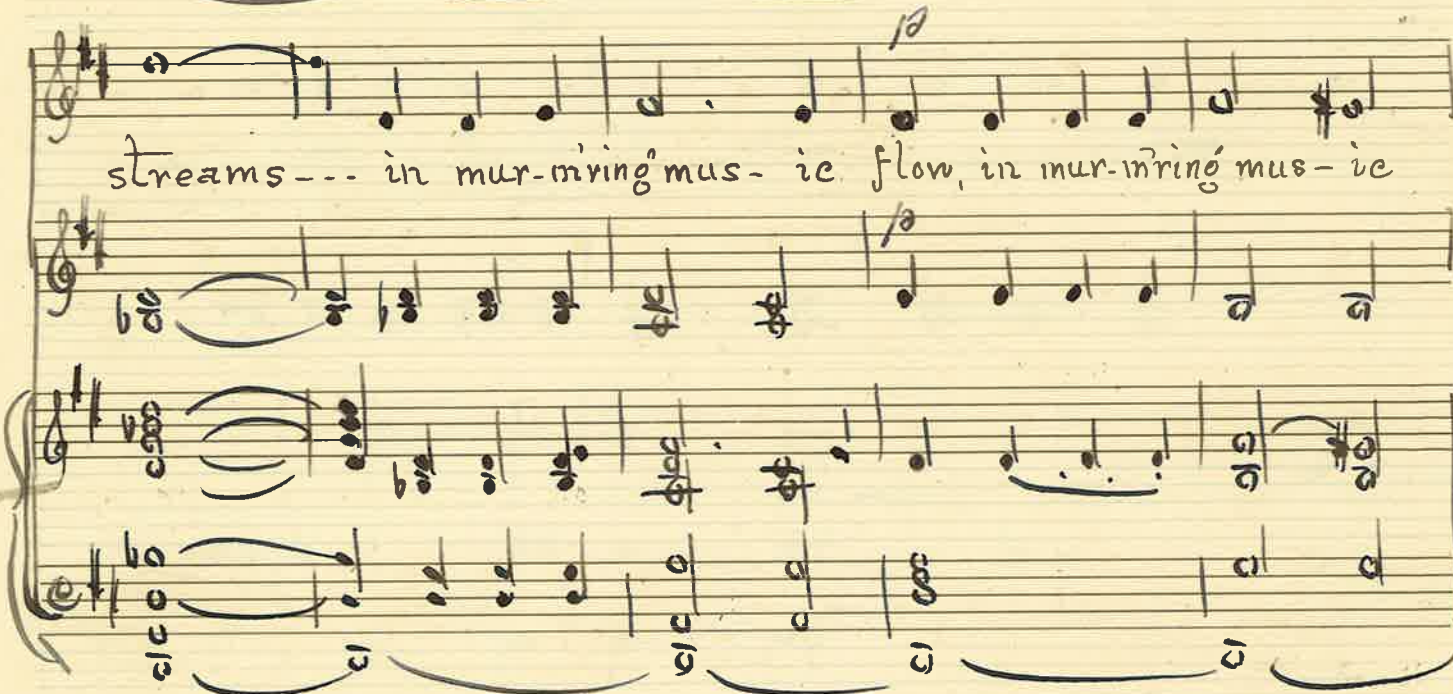 p
streams--- in mur-m'ring mus- ic flow, in mur-m'ring mus-ic
p